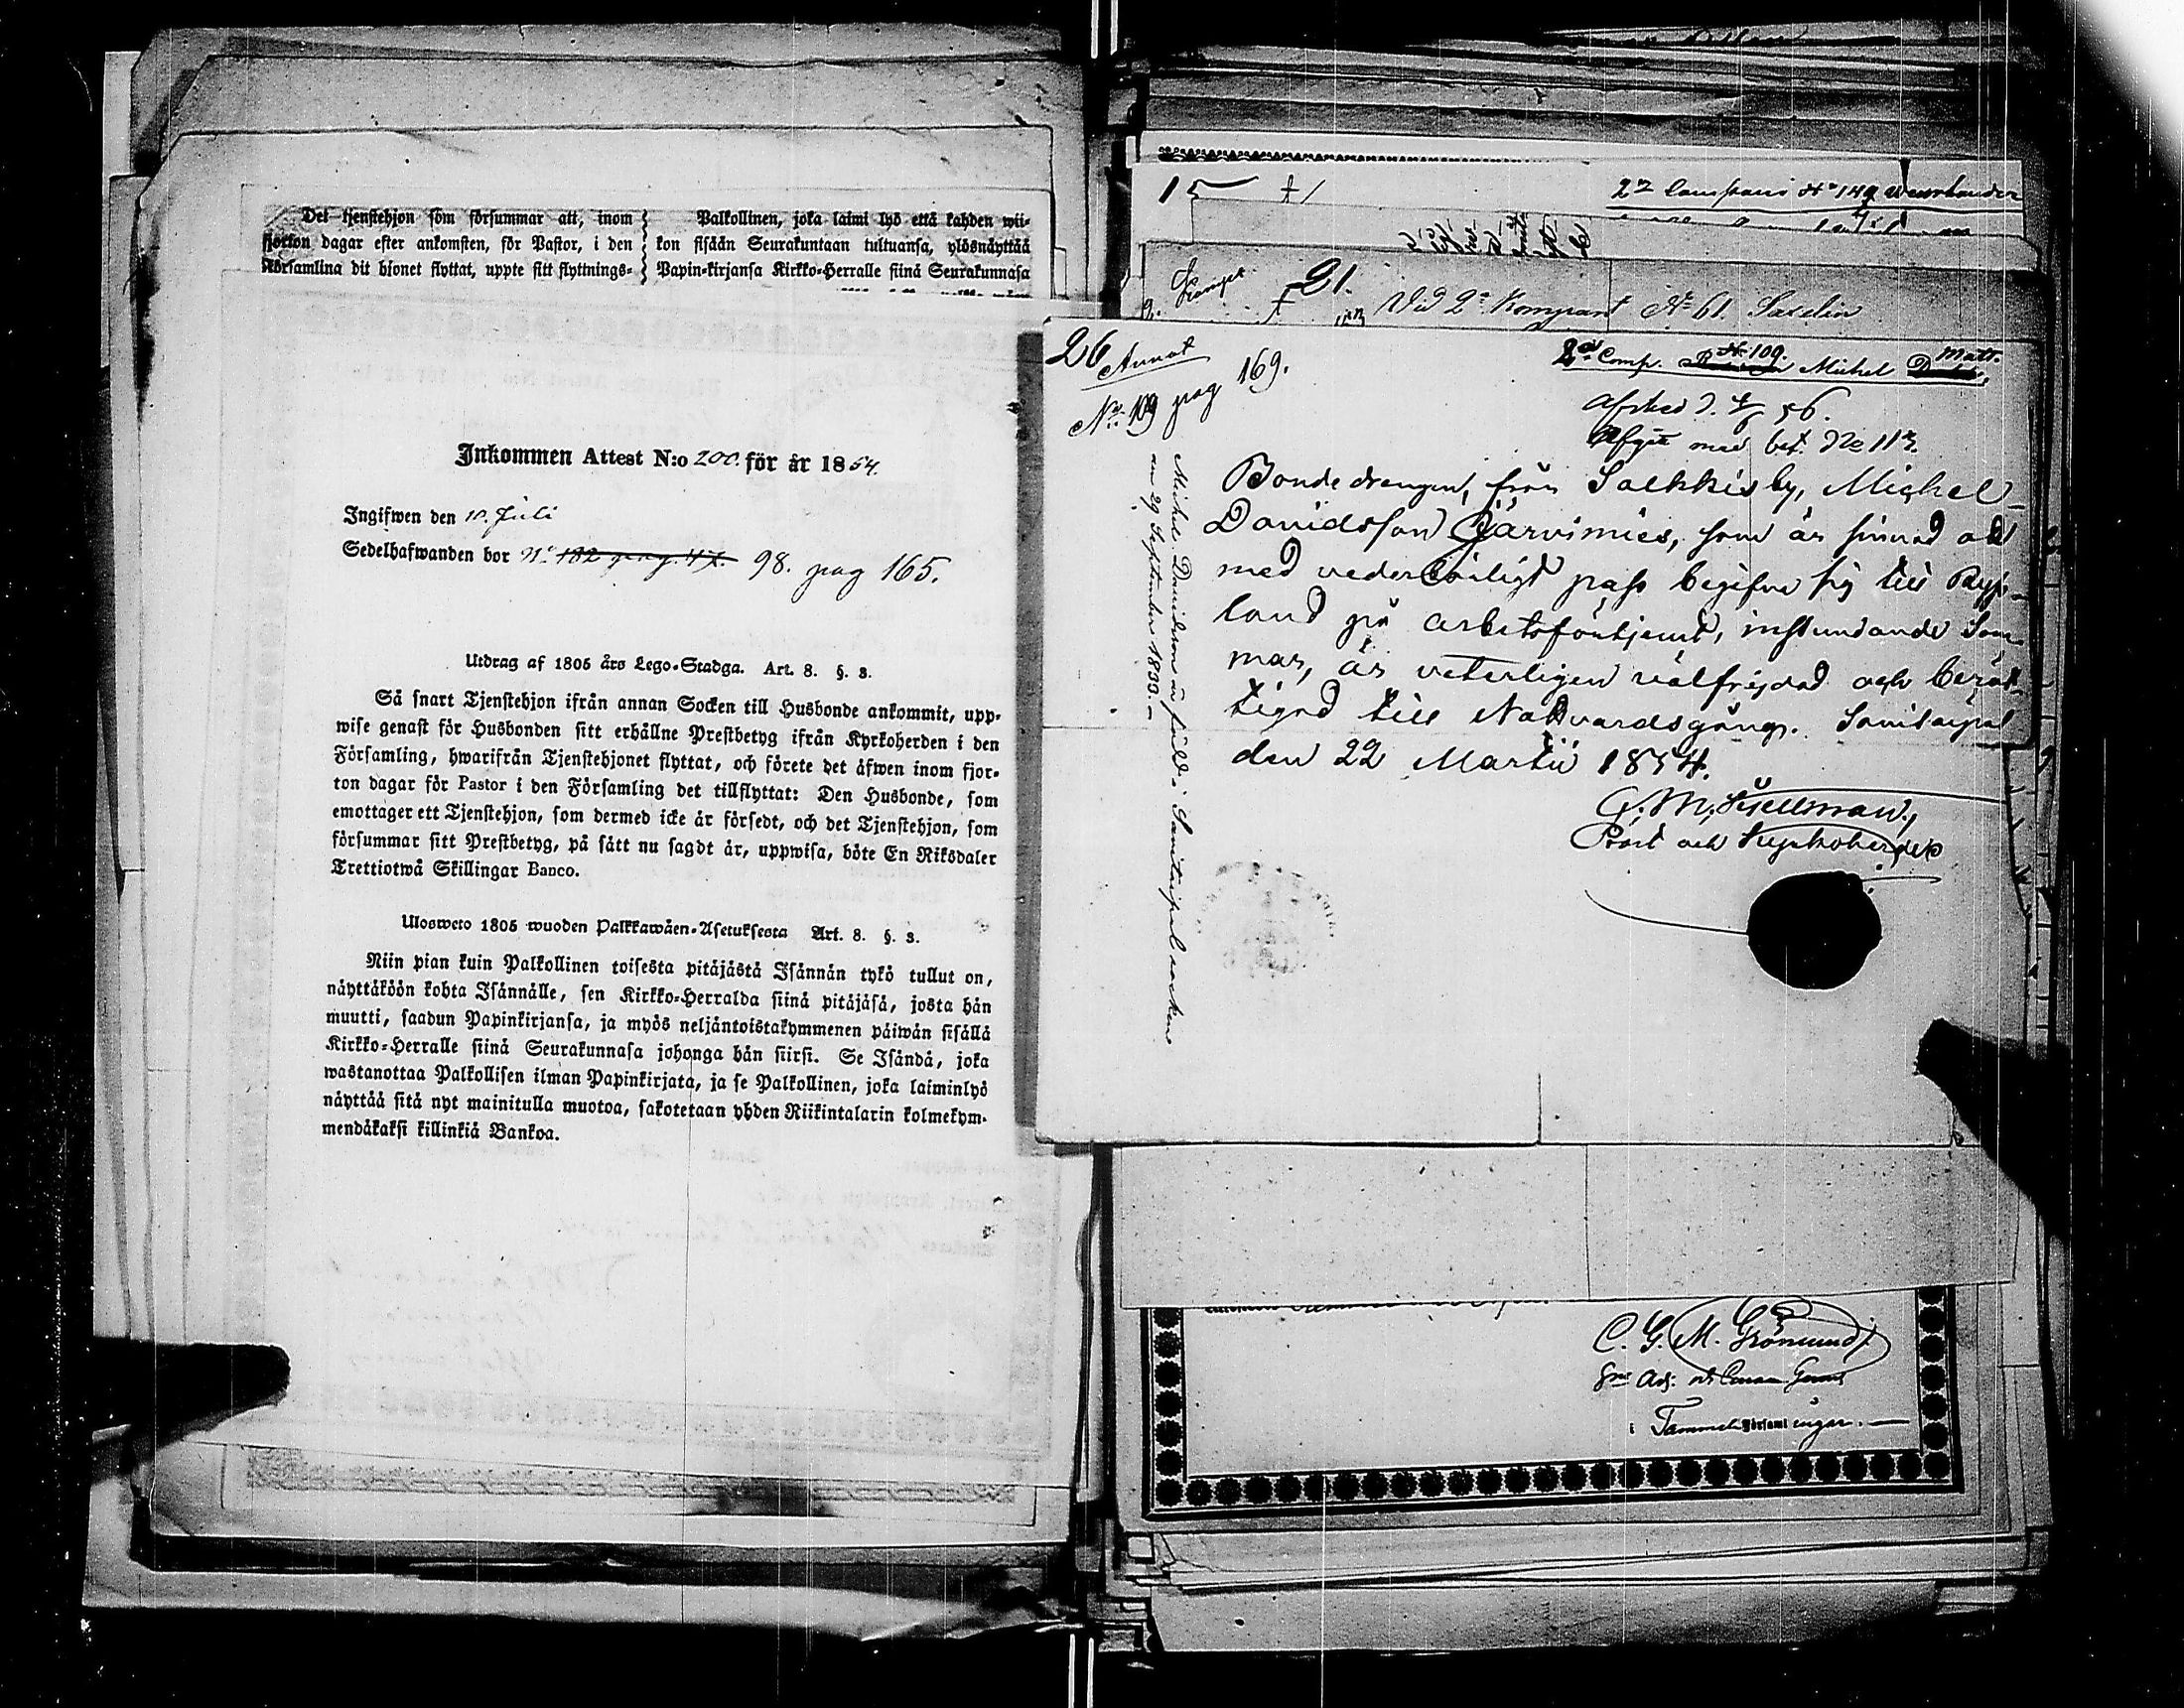 Det tjenstehjon som försummar att, inom
fjorton dagar efter ankomsten, för Pastor, i den
Församling dit hjonet flyttat, uppte sitt flyttnings-
Palkollinen, joka laimi lyö että kahden wii-
kon sisään Seurakuntaan tultuansa, ylösnäyttää
Papin-kirjansa Kirkko-Herralle siinä Seurakunnasa
Inkommen Attest N:o 200. för år 1854.
Ingifwen den 10. Juli
Sedelhafwanden bor N:o 182 pag. 47. 98. pag 165.
Utdrag af 1805 års Lego-Stadga. Art. 8. §. 3.
Så snart Tjenstehjon ifrån annan Socken till Husbonde ankommit, upp-
wise genast för Husbonden sitt erhållne Prestbetyg ifrån Kyrkoherden i den
Församling, hwarifrån Tjenstehjonet flyttat, och förete det äfwen inom fjor-
ton dagar för Pastor i den Församling det tillflyttat: Den Husbonde, som
emottager ett Tjenstehjon, som dermed icke är försedt, och det Tjenstehjon, som
försummar sitt Prestbetyg, på sätt nu sagdt är, uppwisa, böte En Riksdaler
Trettiotwå Skillingar Banco.
Ulosweto 1805 wuoden Palkkawäen-Asetuksesta Art. 8. §. 3.
Niin pian kuin Palkollinen toisesta pitäjästä Isännän tykö tullut on,
näyttäköön kohta Isännälle, sen Kirkko-Herralda siinä pitäjäsä, josta hän
muutti, saadun Papinkirjansa, ja myös neljäntoistakymmenen päiwän sisällä
Kirkko-Herralle siinä Seurakunnasa johonga hän siirsi. Se Isändä, joka
wastanottaa Palkollisen ilman Papinkirjata, ja se Palkollinen, joka laiminlyö
näyttää sitä nyt mainitulla muotoa, sakotetaan yhden Riikintalarin kolmekym-
mendäkaksi killinkiä Bankoa.
15
21. Vid 2:a Kompani N:o 61. Saxelin
26 Annot
N:o 109 pag 169.
2:a Comp. N:o 109. Michel Matts.
Afsked d. 4/8 56.
Afgått med bet. No 113.
Bondedrengen, från Solkkis by, Michel
Davidsson Järvimies, som är sinnad att
med vederbörligt pass begifva sig till Ryss-
land på arbetsförtjenst, instundande Som-
mar, är veterligen välfrejdad och berät-
tigad till Nattvardsgång. Savitaipal
den 22 Martii 1854.
G. M. Kjellman,
Prost och Kyrkoherde
Michel Davidsson är född i Savitaipal socken
den 29 September 1833.
C. G. M. Grönlund
i Tammela Församlingar.